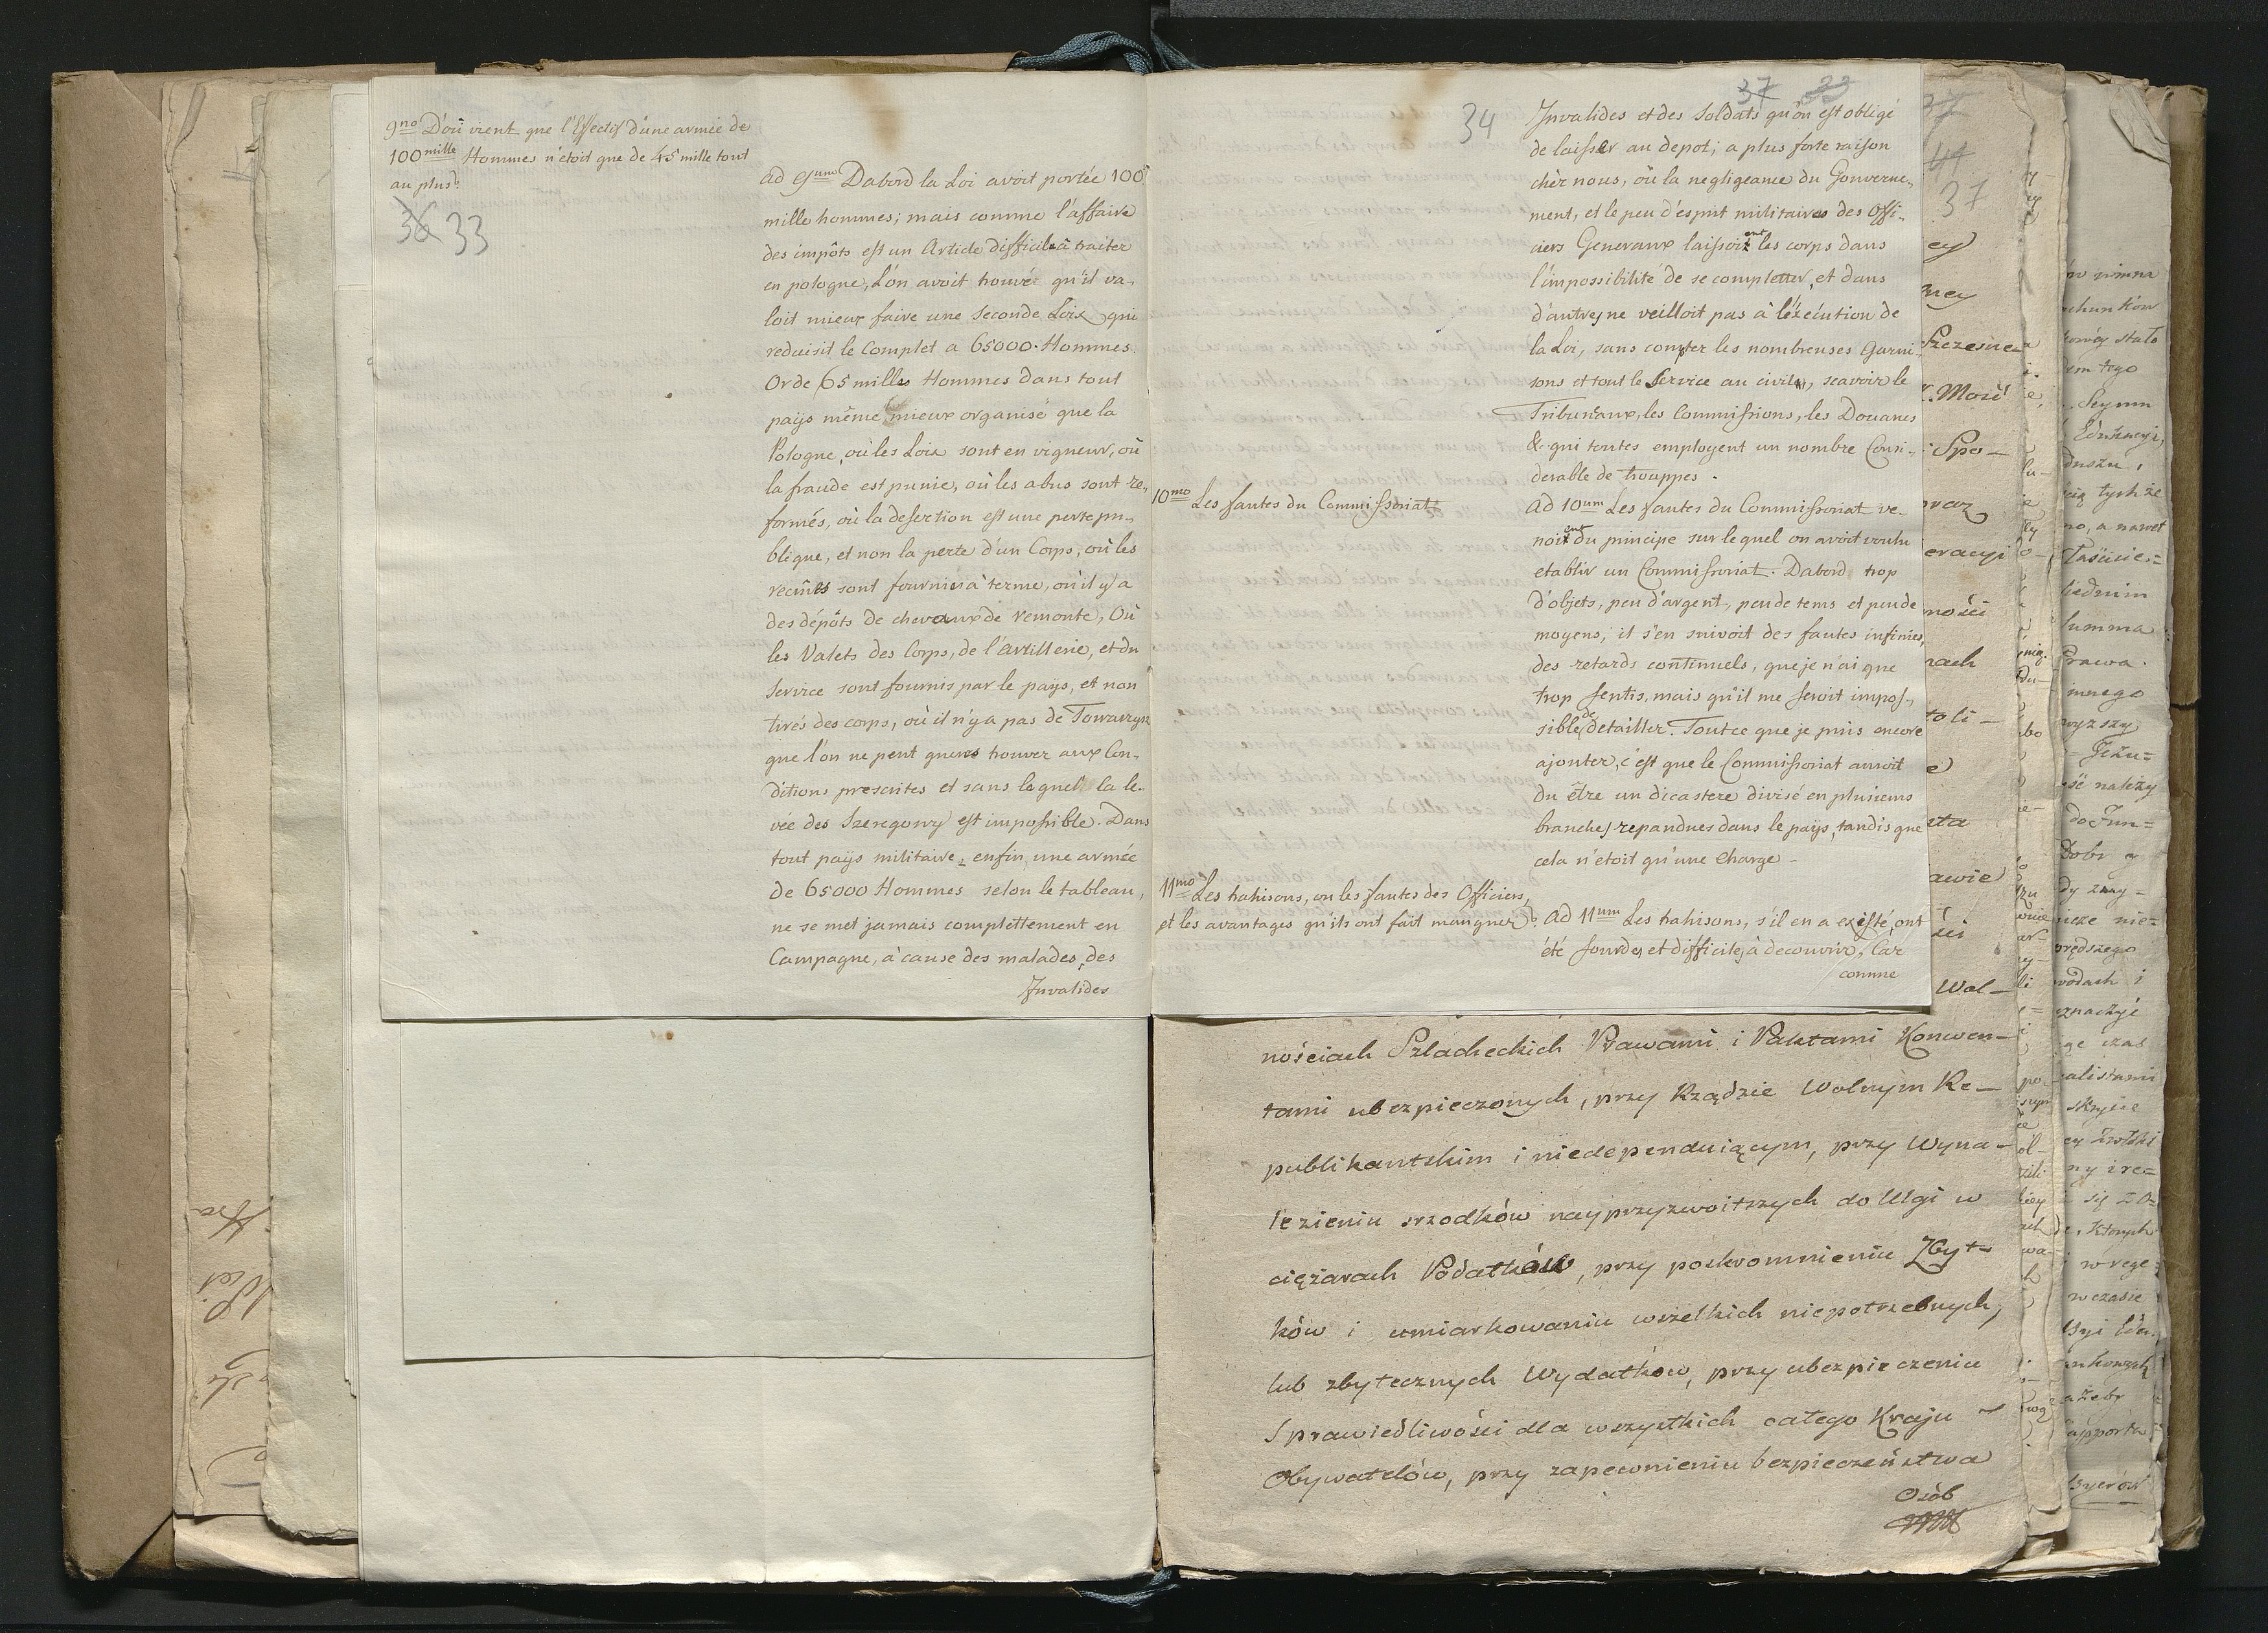 9no D'où vient que l'Effectif d'une armée de
100 mille Hommes n'étoit que de 45 mille tout
au plus?
36 33
ad 9um Dabord la Loi avoit portée 100
mille hommes; mais comme l'affaire
des impôts est un Article difficile à traiter
en pologne, L'on avoit trouvé qu'il va-
loit mieux faire une Seconde Loix qui
reduisit le Complet a 65000. Hommes.
Or de 65 milles Hommes dans tout
païs même mieux organisé que la
Pologne, où les Loix sont en vigueur, où
la fraude est punie, où les abus sont re-
formés, où la desertion est une perte pu-
blique, et non la perte d'un Corps, où les
recrûës sont fournies à terme, où il y a
des dépôts de chevaux de remonte, Où
les Valets des Corps, de l'Artillerie, et du
Service sont fournis par le païs, et non
tirés des corps, où il n'y a pas de Towarzysz
que l'on ne peut gueres trouver aux Con-
ditions prescrites et sans lequel la le-
vée des Szeregowy est impossible. Dans
tout païs militaire, enfin, une armée
de 65000 Hommes selon le tableau,
ne se met jamais complettement en
Campagne, à cause des malades, des
Invalides
37 33
34
Invalides et des Soldats qu'on est obligé
de laisser au depot; a plus forte raison
chèr nous, où la negligeance du Gouverne-
ment, et le peu d'esprit militaires des Offi-
ciers Generaux laissoient les corps dans
l'impossibilité de se completter, et dans
d'autres ne veilloit pas à l'éxécution de
la Loi, sans compter les nombreuses Garni-
sons et tout le Service au civile, scavoir le
Tribunaux, les Commissions, les Douanes
& qui toutes employent un nombre Consi-
derable de trouppes.
10mo Les fautes du Commissoriat
ad 10um Les fautes du Commissoriat ve-
noient du principe sur lequel on avoit voulu
etablir un Commissoriat. Dabord trop
d'objets, peu d'argent, peu de tems et peu de
moyens; il s'en suivoit des fautes infinies,
des retards continuels, que je n'ai que
trop sentis, mais qu'il me seroit impos-
sible de detailler. Tout ce que je puis encore
ajouter, c'est que le Commissoriat auroit
du être un dicastere divisé en plusieurs
branches repandues dans le païs, tandis que
cela n'etoit qu'une Charge.
11mo Les trahisons, ou les fautes des Officiers,
et les avantages qu'ils ont fait manquer?
ad 11um Les trahisons, s'il en a existé, ont
été sourdes et difficiles à decouvrir, Car
comme
37
44
37
nościach Szlacheckich Prawami i Paktami Konwen-
tami ubezpieczonych, przy Rządzie Wolnym Re-
publikantskim i niedependuiącym, przy Wyna-
lezieniu srzodków nayprzyzwoitszych do Ulgi w
ciężarach Podatków, przy poskromnieniu Zbyt-
ków i umiarkowaniu wszelkich niepotrzebnych,
lub zbytecznych Wydatków, przy ubezpieczeniu
Sprawiedliwości dla wszystkich całego Kraju
Obywatelów, przy zapewnieniu bezpieczeństwa
Osób